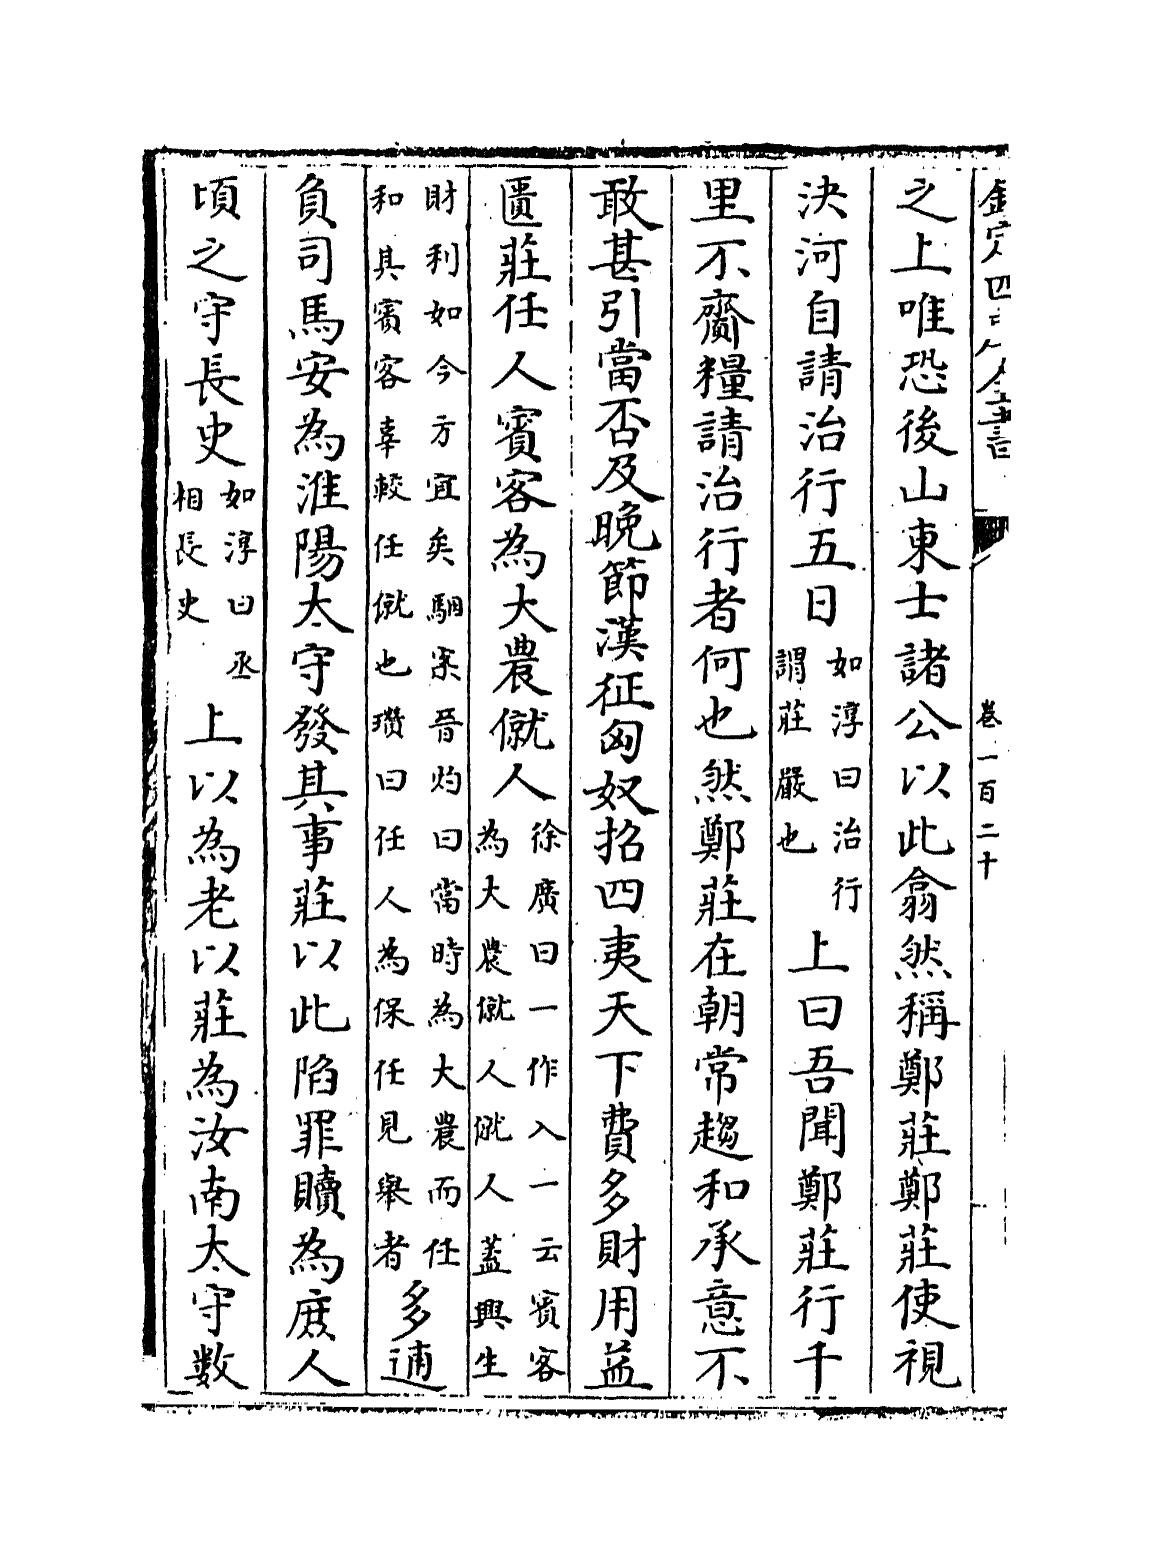 欽定四庫全書
卷一百二十
之上唯恐後山東士諸公以此翕然稱鄭莊鄭莊使視
決河自請治行五日如淳曰治行謂莊嚴也上曰吾聞鄭莊行千
里不齎糧請治行者何也然鄭莊在朝常趨和承意不
敢甚引當否及晚節漢征匈奴招四夷天下費多財用益
匱莊任人賓客為大農僦人徐廣曰一作入一云賓客為大農僦人僦人蓋興生
財利如今方宜矣駰案晉灼曰當時為大農而任和其賓客辜較任僦也瓚曰任人為保任見舉者多逋
負司馬安為淮陽太守發其事莊以此陷罪贖為庶人
頃之守長史如淳曰丞相長史上以為老以莊為汝南太守數